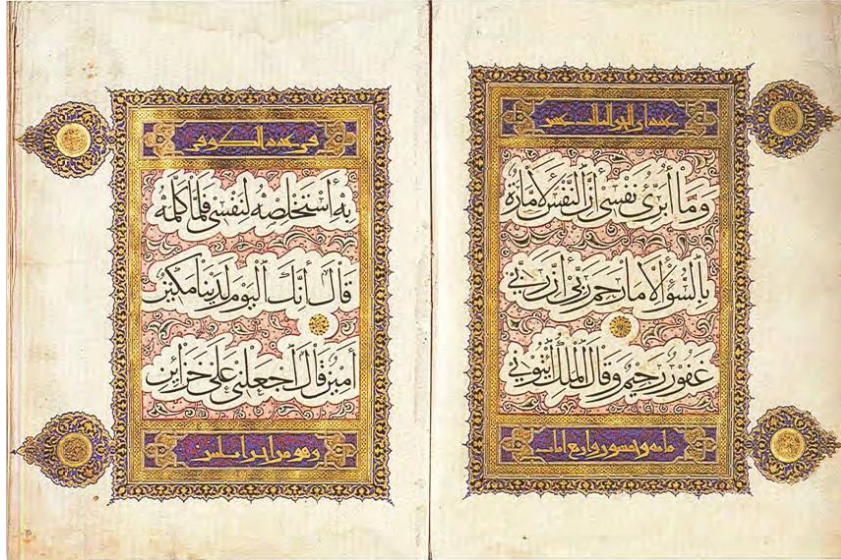 وَمَا أُبَرِّئُ نَفْسِي إِنَّ النَّفْسَ لَأَمَّارَةٌ
بِالسُّوءِ إِلَّا مَا رَحِمَ رَبِّي إِنَّ رَبِّي
غَفُورٌ رَحِيمٌ وَقَالَ الْمَلِكُ ائْتُونِي
في عدد الكوفي
بِهِ أَسْتَخْلِصْهُ لِنَفْسِي فَلَمَّا كَلَّمَهُ
قَالَ إِنَّكَ الْيَوْمَ لَدَيْنَا مَكِينٌ
أَمِينٌ قَالَ اجْعَلْنِي عَلَى خَزَائِنِ
وهو من